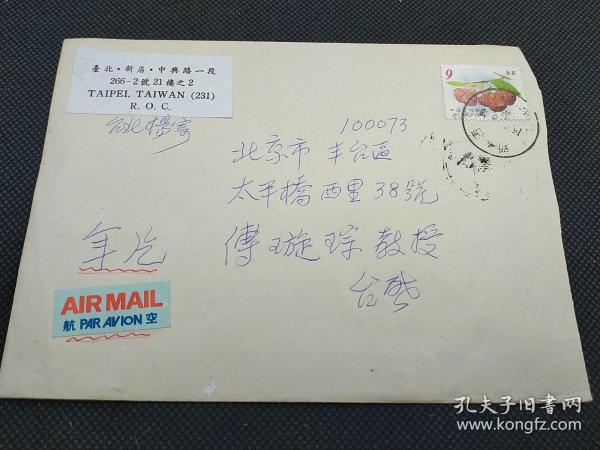 臺北・新店・中興路一段
266-2號21樓之2
TAIPEI, TAIWAN (231)
R. O. C.
台北楊寄
9
100073
北京市 丰台區
太平橋西里38號
年片
傅璇琮教授
台啓
AIR MAIL
航 PAR AVION 空
孔夫子旧书网
www.kongfz.com